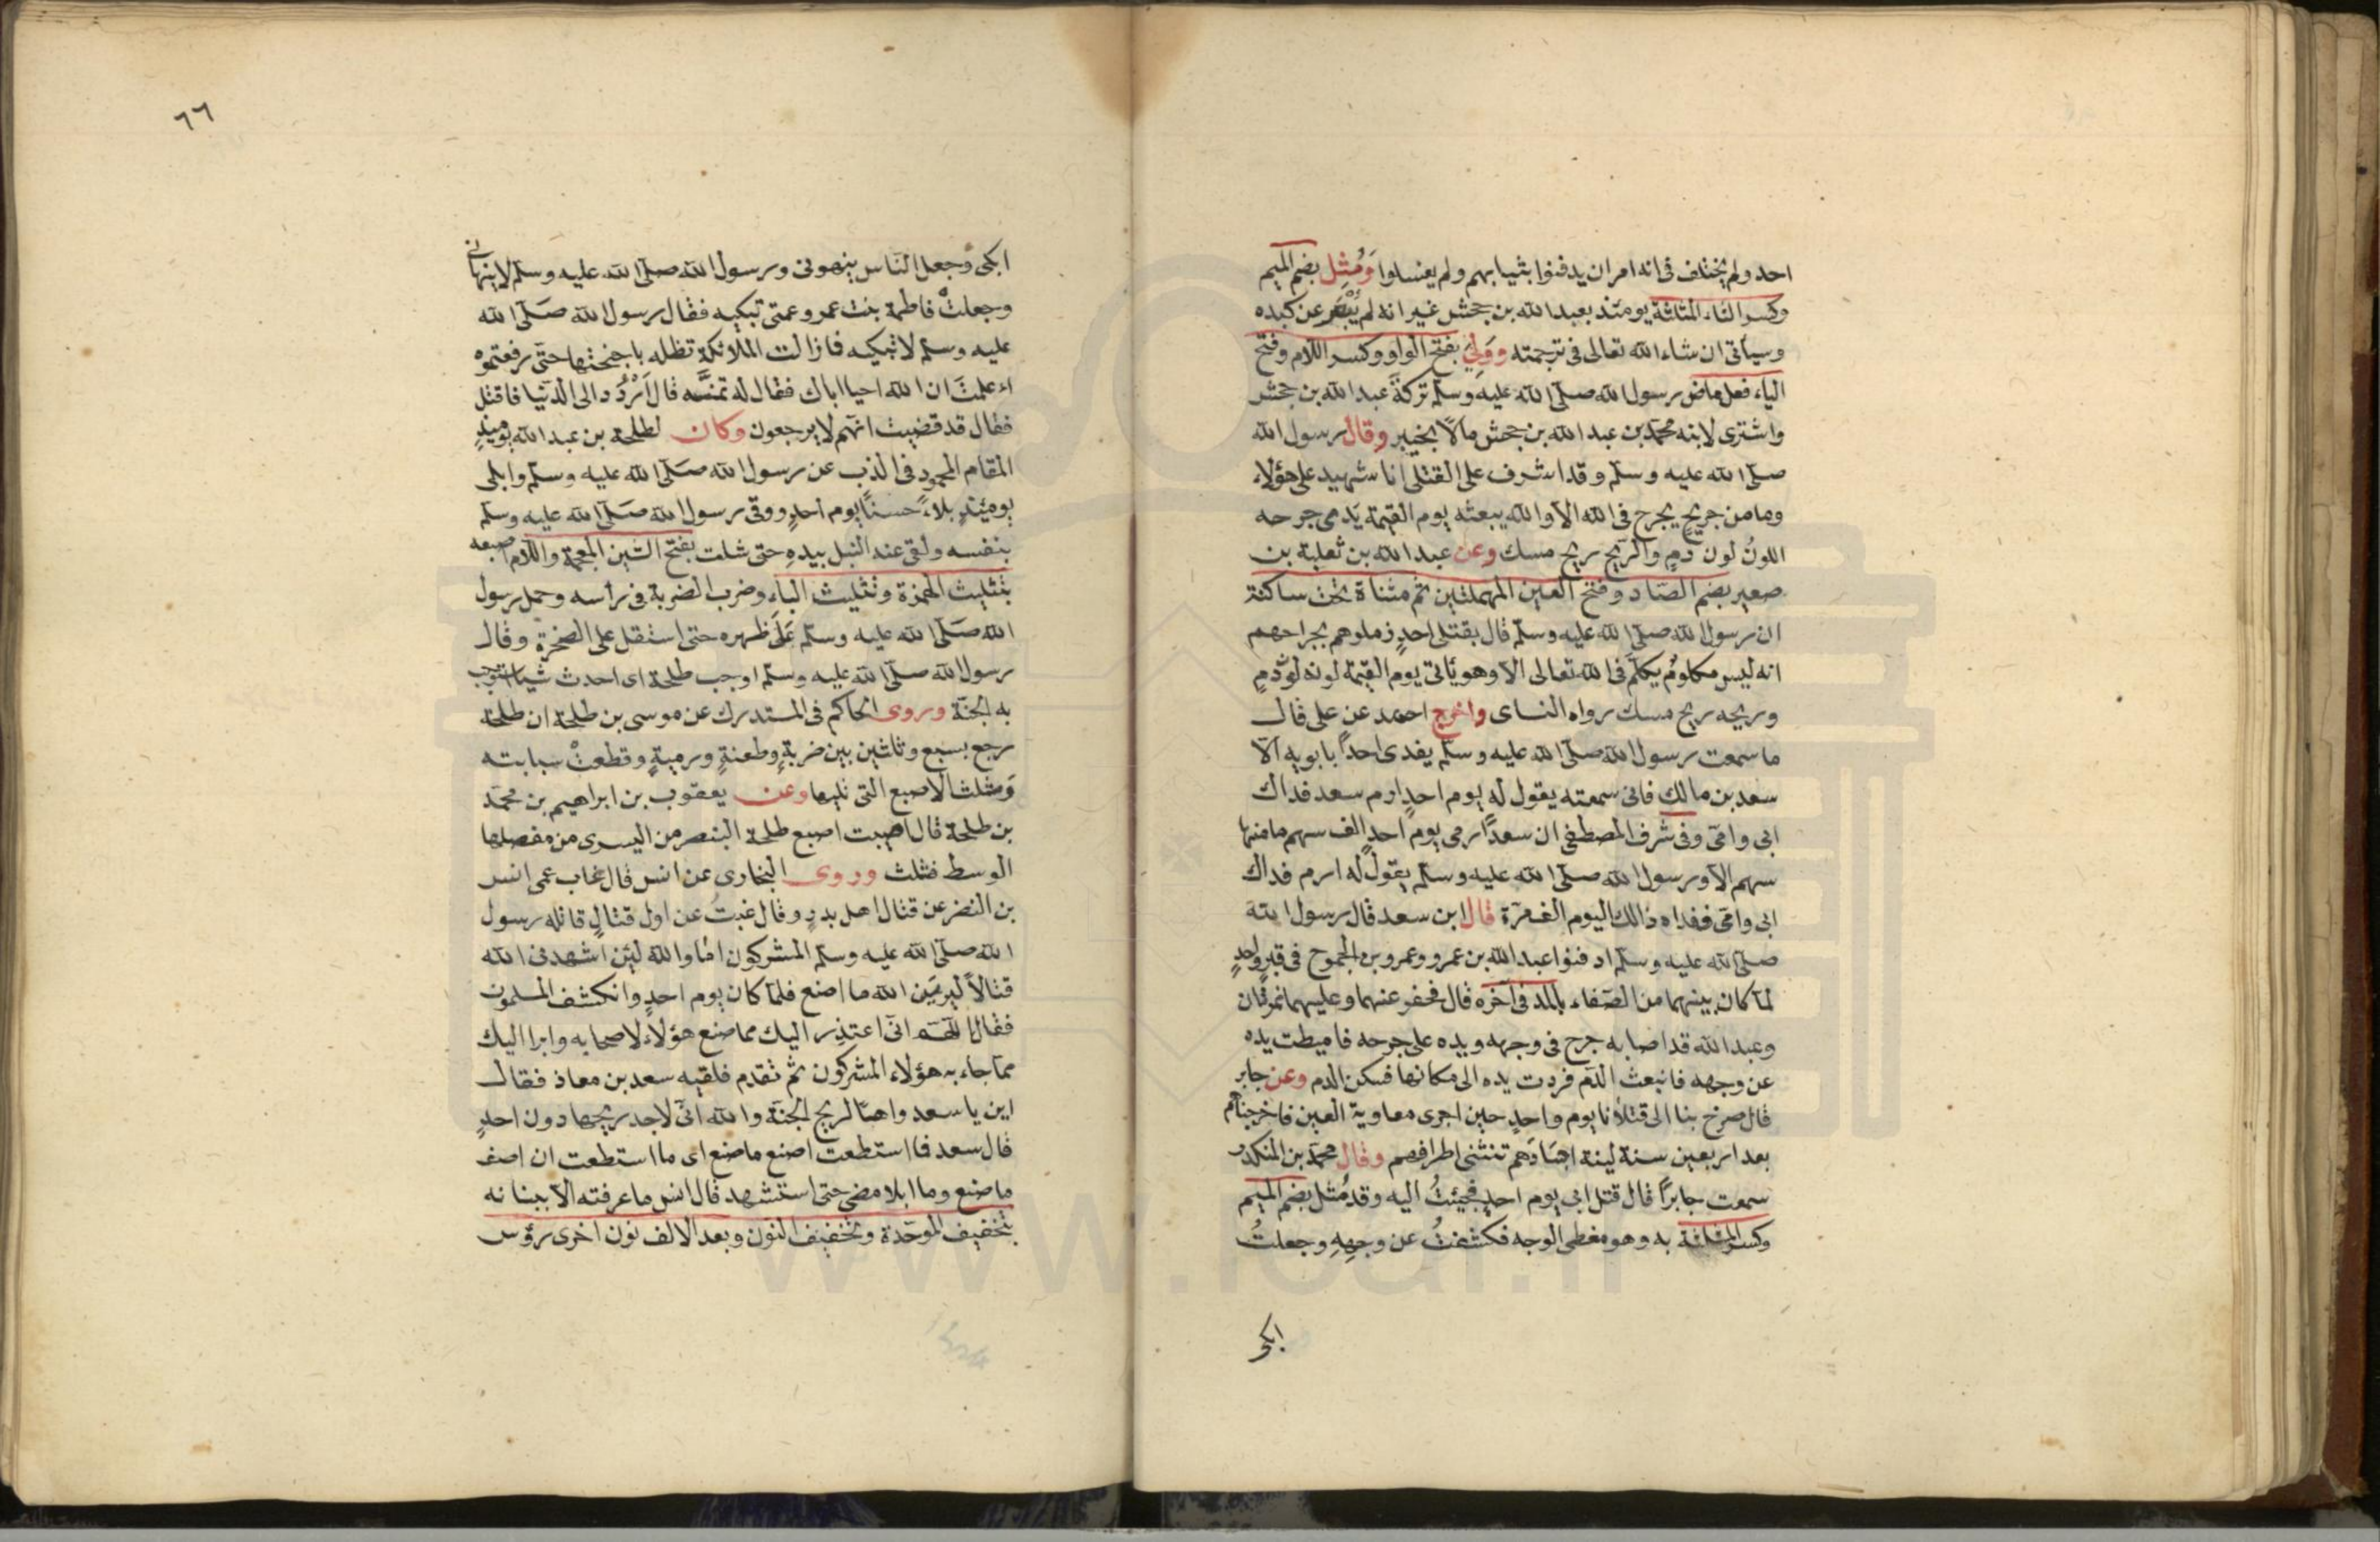 احد ولم يختلف فى انه امر ان يدفنوا بثيابهم ولم يغسلوا وَمُثِل بضم الميم
وكسر الثاء المثلثة يومئذ بعبد الله بن جحش غير انه لم يُبْقَر عن كبده
وسيأتى ان شاء الله تعالى فى ترجمته ووَلِيَ بفتح الواو وكسر اللام وفتح
الياء فعل ماض رسول الله صلى الله عليه وسلم تركةَ عبد الله بن جحش
واشترى لابنه محمد بن عبد الله بن جحش مالاً بخيبر وقال رسول الله
صلى الله عليه وسلم وقد اشرف على القتلى انا شهيد على هؤلاء
وما من جريح يجرح فى الله الا والله يبعثه يوم القيمة يَدمى جرحه
اللونُ لون دمٍ والريح ريح مسك وعن عبد الله بن ثعلبة بن
صعير بضم الصاد وفتح العين المهملتين ثم مثناة تحت ساكنة
ان رسول الله صلى الله عليه وسلم قال بقتلى احدٍ زملوهم بجراحهم
انه ليس مكلومٌ يكلم فى الله تعالى الا وهو يأتى يوم القيمة لونه لونُ دمٍ
وريحه ريح مسك رواه النساى واخرج احمد عن على قال
ما سمعت رسول الله صلى الله عليه وسلم يفدى احداً بابويه الا
سعد بن مالك فانى سمعته يقول له يوم احدٍ ارم سعد فداك
ابى وامى وفى شرف المصطفى ان سعداً رمى يوم احدٍ الف سهم ما منها
سهم الا ورسول الله صلى الله عليه وسلم يقول له ارم فداك
ابى وامى ففداه ذالك اليوم الف مرة قال ابن سعد قال رسول الله
صلى الله عليه وسلم ادفنوا عبد الله بن عمرو وعمرو بن الجموح فى قبرٍ واحدٍ
لما كان بينهما من الصفاء بالمد فى آخره قال فحفر عنهما وعليهما نمرتان
وعبد الله قد اصابه جرح فى وجهه ويده على جرحه فاميطت يده
عن وجهه فانبعث الدم فردت يده الى مكانها فسكن الدم وعن جابر
قال صرخ بنا الى قتلانا يوم واحدٍ حين اجرى معاوية العين فاخرجناهم
بعد اربعين سنة لينة اجسَادهم تنثنى اطرافهم وقال محمد بن المنكدر
سمعت جابراً قال قتل ابى يوم احدٍ فجيئتُ اليه وقد مُثل بضم الميم
وكسر المثلثة به وهو مغطى الوجه فكشفتُ عن وجههِ وجعلتُ
ابكى
٦٦
ابكى وجعل الناس ينهونى ورسول الله صلى الله عليه وسلم لا ينهانى
وجعلتْ فاطمة بنت عمرو عمتى تبكيه فقال رسول الله صلى الله
عليه وسلم لا تبكيه فما زالت الملائكة تظله باجنحتها حتى رفعتموه
اءعلمتَ ان الله احيا اباك فقال له تمنَّه قال اُرَدُّ الى الدنيا فاقتل
فقال قد قضيت انهم لا يرجعون وكان لطلحة بن عبد الله يوميذٍ
المقام المحمود فى الذب عن رسول الله صلى الله عليه وسلم وابلى
يومئذٍ بلاءً حسناً يوم احدٍ ووقى رسول الله صلى الله عليه وسلم
بنفسه ولقى عنه النبل بيدهِ حتى شلت بفتح الشين المعجمة واللام اصبعه
بتثليث الهمزة وتثليث الباء وضرب الضربة فى رأسه وحمل رسول
الله صلى الله عليه وسلم عَلَى ظهره حتى استقل على الصخرة وقال
رسول الله صلى الله عليه وسلم اوجب طلحة اى احدث شيا تجب
به الجنة وروى الحاكم فى المستدرك عن موسى بن طلحة ان طلحة
رجع بسبع وثلثين بين ضربةٍ وطعنةٍ ورميةٍ وقطعتْ سبابته
وشلت الاصبع التى تليها وعن يعقوب بن ابراهيم بن محمد
بن طلحة قال اصيبت اصبع طلحة البنصر من اليسرى من مفصلها
الوسط فشلت وروى البخارى عن انس قال غاب عمى انس
بن النضر عن قتال اهل بدرٍ وقال غبتُ عن اول قتالٍ قاتله رسول
الله صلى الله عليه وسلم المشركون اما والله لئن اشهدنى الله
قتالاً ليرَيَن الله ما اصنع فلما كان يوم احدٍ وانكشف المسلمون
فقال اللهم انى اعتذر اليك مما صنع هؤلاء لاصحابه وابرا اليك
مما جاء به هؤلاء المشركون ثم تقدم فلقيه سعد بن معاذ فقال
اين يا سعد واهاً لريح الجنة والله انى لاجد ريحها دون احدٍ
قال سعد فما استطعت اصنع ما صنع اى ما استطعت ان اصف
ما صنع وما ابلا مضى حتى استشهد قال انس ما عرفته الا ببنانه
بتخفيف الموحدة وتخفيف النون وبعد الالف نون اخرى رؤس
www.ical.ir